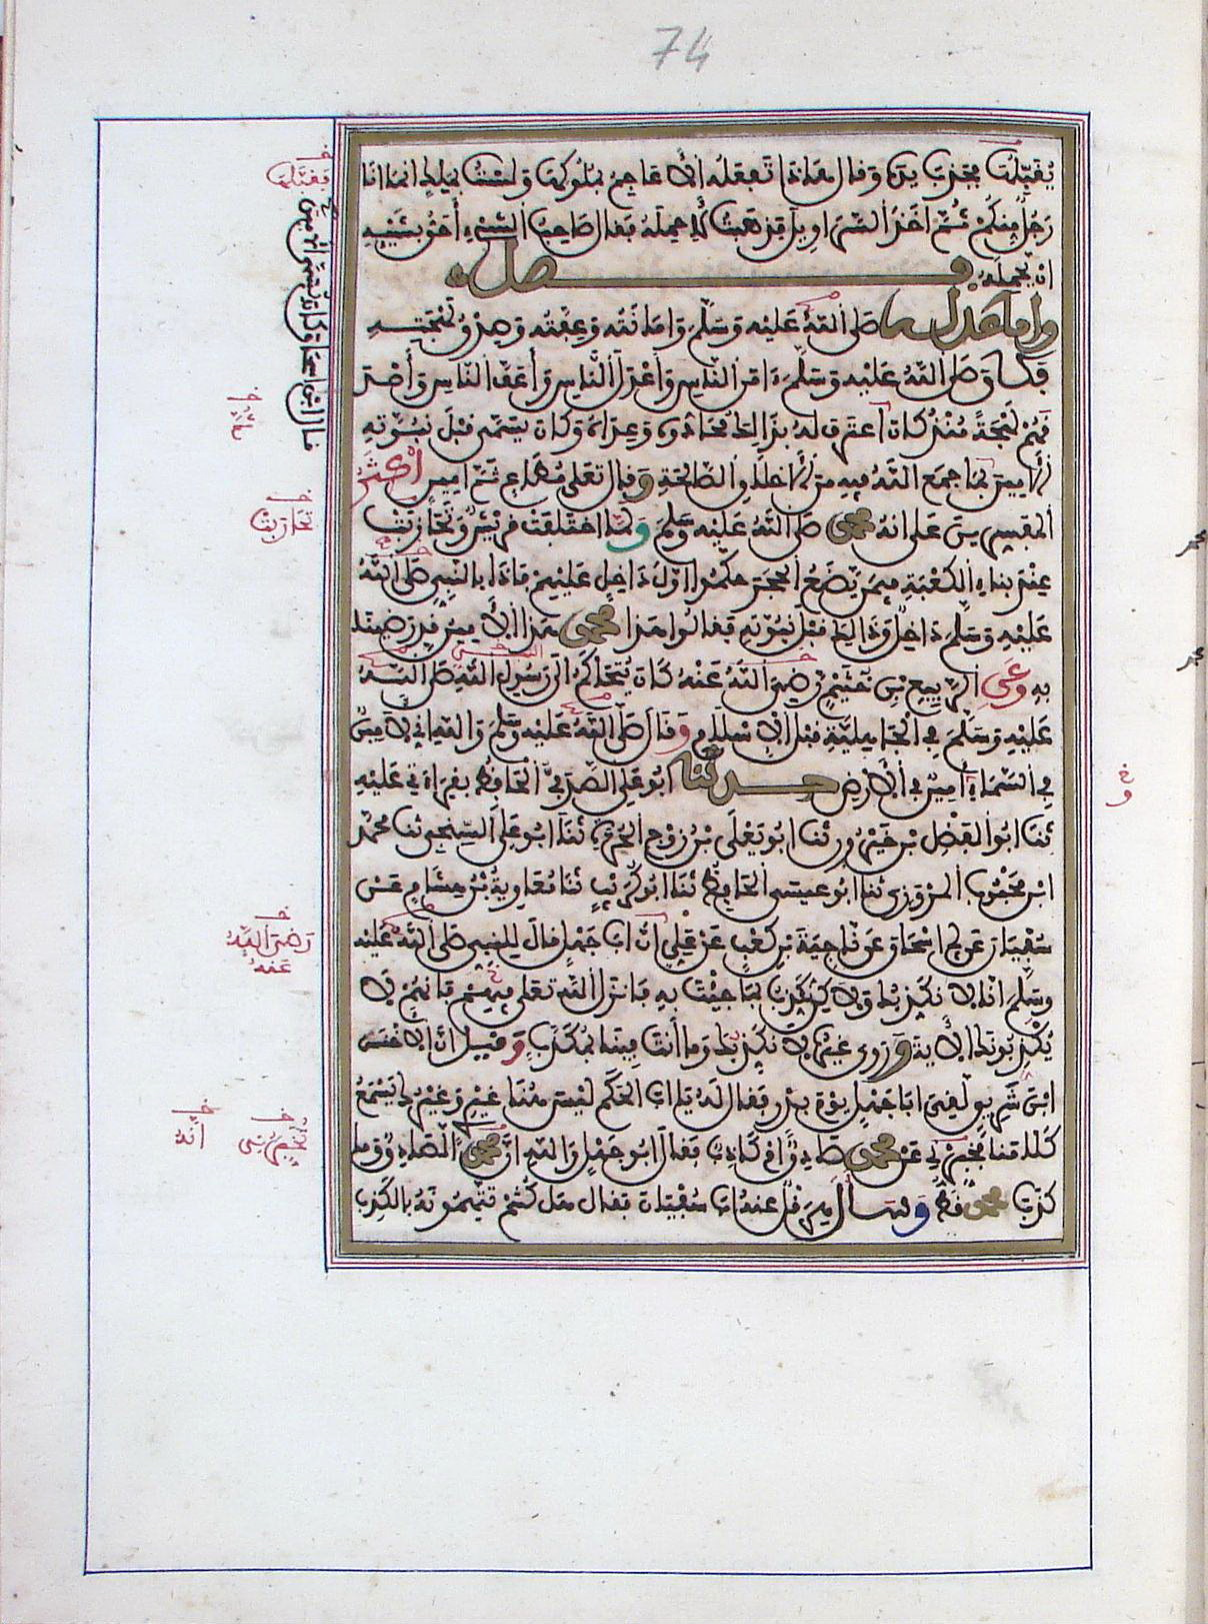 74
يُقَبِّلُهَا فجذب يده وقال هذا تفعله الأعاجم بملوكها ولست بملك انما انا
رجل منكم ثم اخذ السراويل فذهبت لأحمله فقال صاحب الشيء أحق بشيئه
ان يحمله فصل
واما عدله صلى الله عليه وسلم وامانته وعفته وصدق لهجته
فكان صلى الله عليه وسلم ءامن الناس وأعدل الناس وأعف الناس وأصدق
هم لهجة منذ كان اعترف له بذالك محادوه وعداه وكان يسمى قبل نبوته
الأمين بما جمع الله فيه من الأخلاق الصالحة وقال تعلى مطاع ثم امين أكثر
المفسرين على انه محمد صلى الله عليه وسلم ولما اختلفت قريش وتحازبت
عند بناء الكعبة فيمن يضع الحجر حكموا اول داخل عليهم فاذا بالنبي صلى الله
عليه وسلم داخل وذالك قبل نبوته فقالوا هذا محمد هذا الأمين قد رضينا
به وعن الربيع بن خثيم رضي الله عنه كان يتحاكم الى رسول الله صلى الله
عليه وسلم في الجاهلية قبل الاسلام وقال صلى الله عليه وسلم والله اني لأمين
في السماء امين في الأرض حدثنا ابو علي الصدفي الحافظ بقراءتي عليه
ثنا ابو الفضل بن خيرون ثنا ابو يعلى بن زوج الحرة ثنا ابو علي السنجي ثنا محمد
ابن محبوب المروزي ثنا ابو عيسى الحافظ ثنا ابو كريب ثنا معاوية بن هشام عن
سفيان عن ابي اسحاق عن ناجية بن كعب عن علي ان ابا جهل قال للنبي صلى الله عليه
وسلم انا لا نكذبك ولاكن نكذب بما جئت به فانزل الله تعلى فيهم فانهم لا
يكذبونك الأية وروى غيره لا نكذبك وما أنت فينا بمكذب وقيل ان الأخنس
ابن شريق لقي ابا جهل يوم بدر فقال له يا ابا الحكم ليس هنا غيري وغيرك يسمع
كلامنا تخبرني عن محمد صادق أم كاذب فقال ابو جهل والله ان محمدا لصادق وما
كذب محمد قط وسأل هرقل عنه ابا سفيان فقال هل كنتم تتهمونه بالكذب
فقبلها
قال ابن اسحاق كان يسمى الامين
تحازبت
رضي الله
عنه
تخبرني
انه